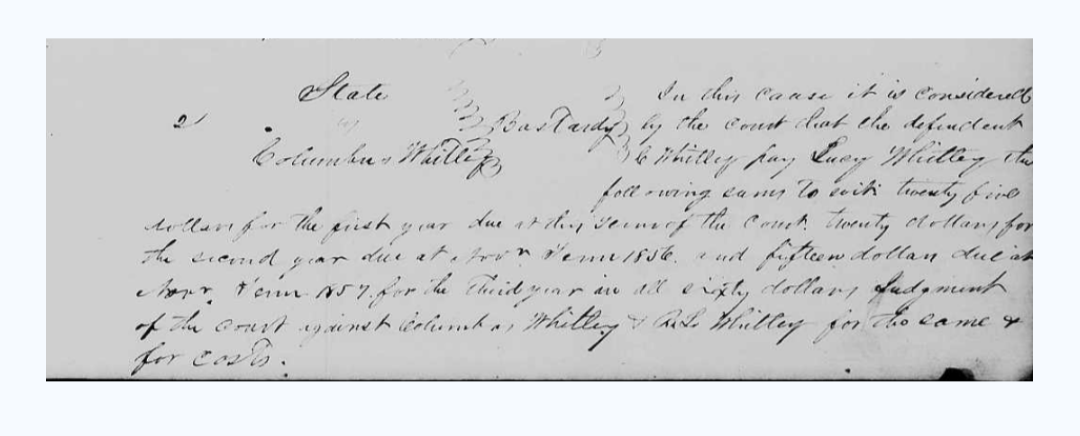 State In this cause it is considered
2 Bastardy by the court that the defendent
Columbus Whitley C Whitley pay Lucy Whitley the
following sums to wit twenty five
dollars for the first year due at this Term of the Court. twenty dollars for
the second year due at Novr Term 1856. and fifteen dollars due at
Novr. Term 1857. for the third year in all sixty dollars Judgment
of the court against Columbus Whitley & Whitley for the same &
for costs.